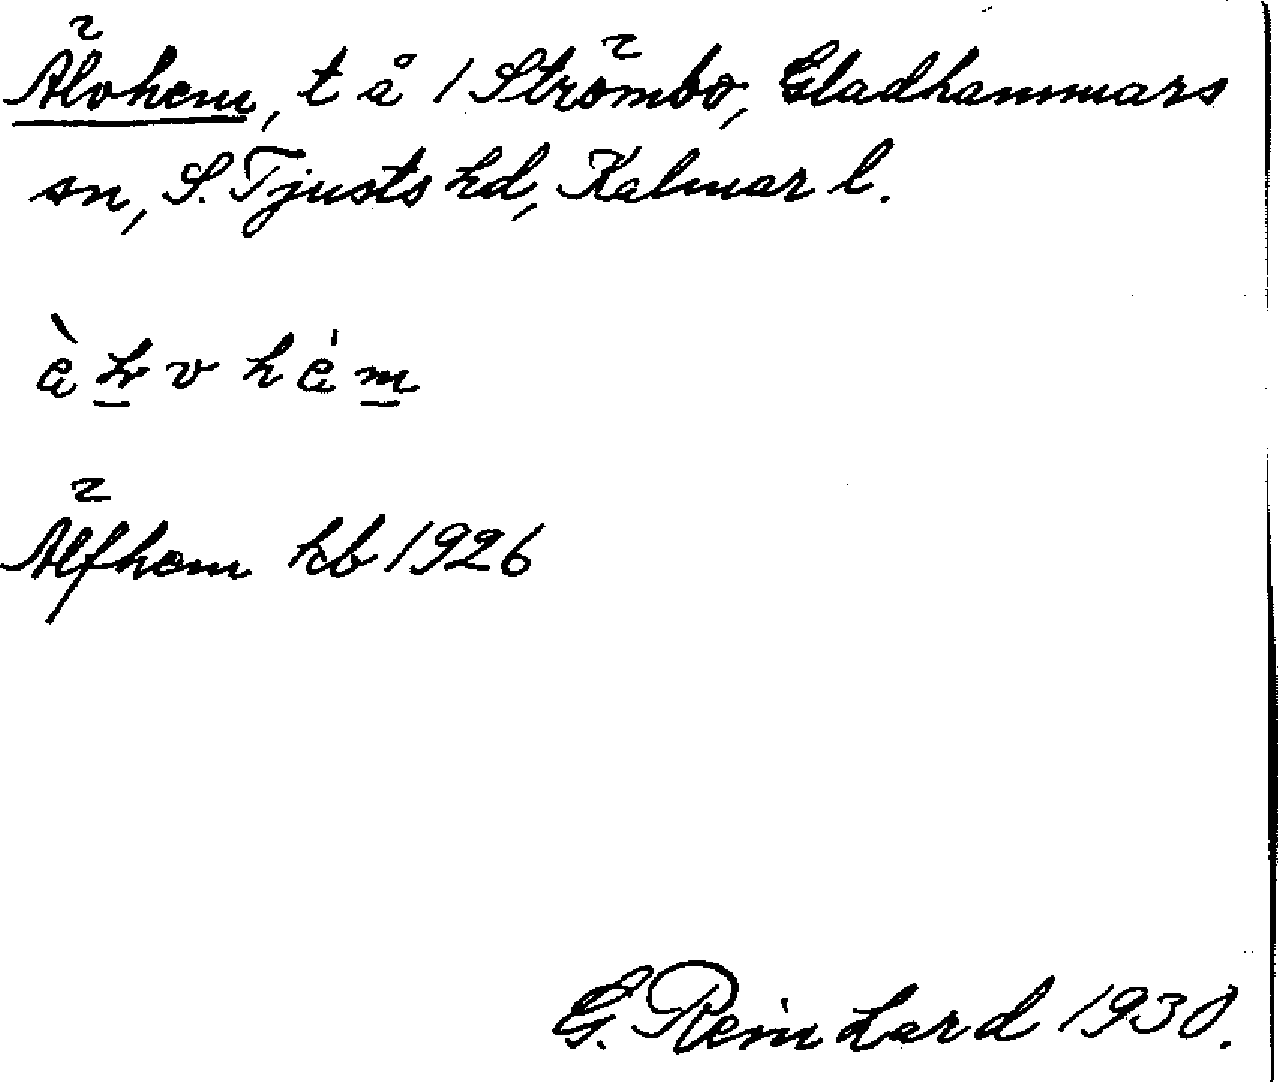 Älvhem, t å 1 Strömbo, Gladhammars
sn, S. Tjusts hd, Kalmar l.
Älfhem kb 1926
G. Reinhard 1930.